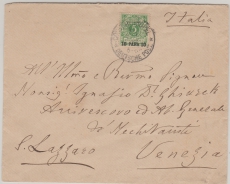 Italia
10 PARA 10
All' Illmo e Revmo Signor
Monsig Ignazio Dr Ghiurek
Arcivescovo ed Ab. Generale
de' Mechitaristi
S. Lazzaro Venezia